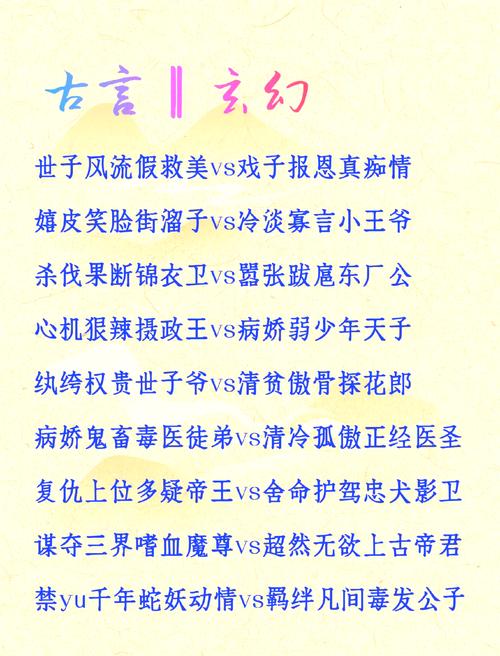 古言‖玄幻
世子风流假救美vs戏子报恩真痴情
嬉皮笑脸街溜子vs冷淡寡言小王爷
杀伐果断锦衣卫vs嚣张跋扈东厂公
心机狠辣摄政王vs病娇弱少年天子
纨绔权贵世子爷vs清贫傲骨探花郎
病娇鬼畜毒医徒弟vs清冷孤傲正经医圣
复仇上位多疑帝王vs舍命护驾忠犬影卫
谋夺三界嗜血魔尊vs超然无欲上古帝君
禁yu千年蛇妖动情vs羁绊凡间毒发公子